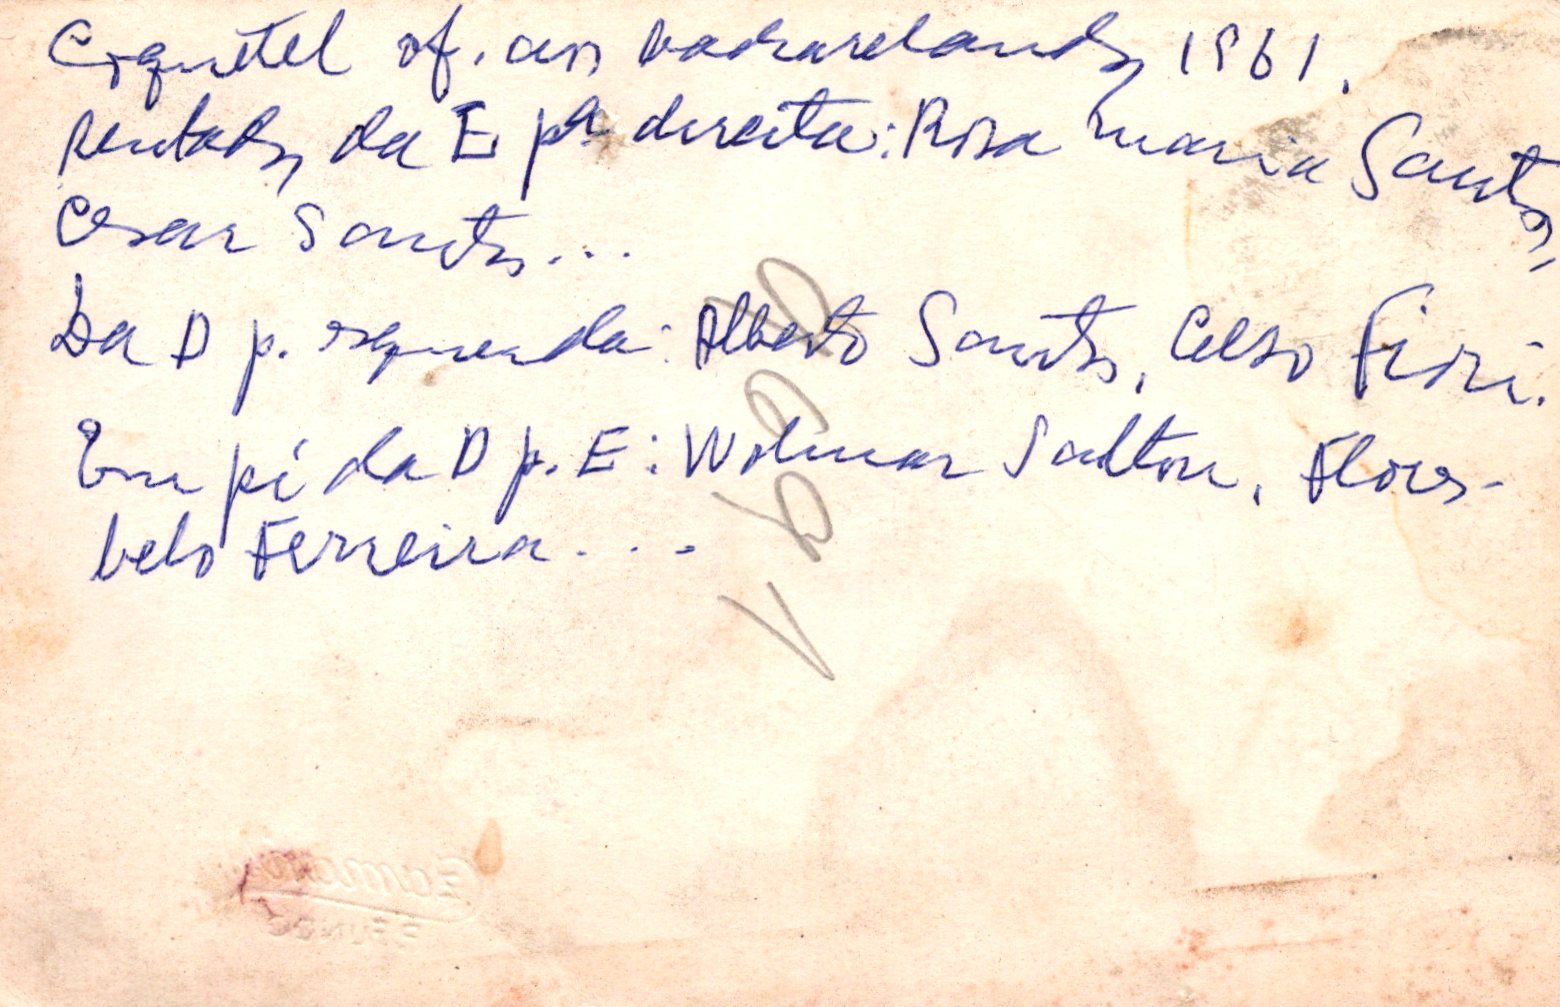 Coquetel of. aos bacharelandos, 1961.
sentados, da E pª direita: Rosa Maria Santos,
Cesar Santos...
Da D p. esquerda: Alberto Santos, Celso Fiori.
Em pé da D p. E: Wolmar Salton, Flores-
belo Ferreira...
P. FUNDO